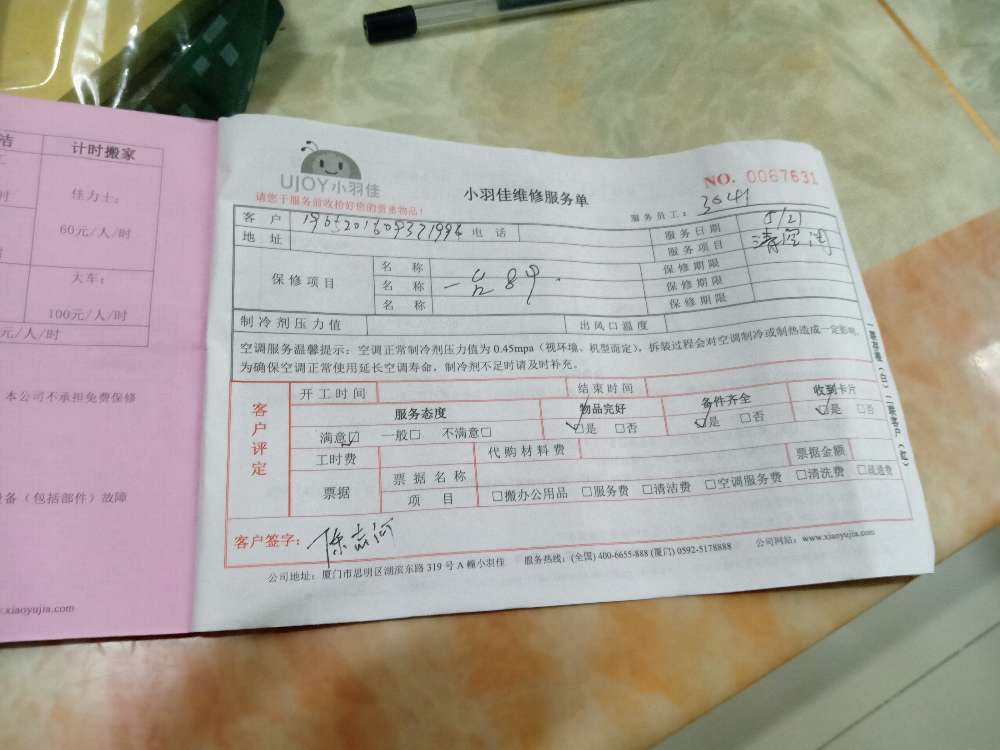 洁
计时搬家
佳力士：
60元/人/时
大车：
100元/人/时
元/人/时
本公司不承担免费保修
设备（包括部件）故障
.xiaoyujia.com
UJOY小羽佳
请您于服务前收拾好您的贵重物品！
小羽佳维修服务单
NO. 0067631
服务员工：3541
客户 电话 服务日期 5/21
地址 服务项目 清空调
保修项目 名称 保修期限
名称 一台89. 保修期限
名称 保修期限
制冷剂压力值 出风口温度
空调服务温馨提示：空调正常制冷剂压力值为0.45mpa（视环境、机型而定），拆装过程会对空调制冷或制热造成一定影响，
为确保空调正常使用延长空调寿命，制冷剂不足时请及时补充。
一联存根（白）二联客户（红）
客户评定
开工时间 结束时间
服务态度 物品完好 备件齐全 收到卡片
满意☑ 一般□ 不满意□ ☑是 □否 ☑是 □否 ☑是 □否
工时费 代购材料费
票据 票据名称 票据金额
项目 □搬办公用品 □服务费 □清洁费 □空调服务费 □清洗费 □疏通费
客户签字：
公司地址：厦门市思明区湖滨东路319号A幢小羽佳 服务热线：(全国) 400-6655-888 (厦门) 0592-5178888 公司网站：www.xiaoyujia.com